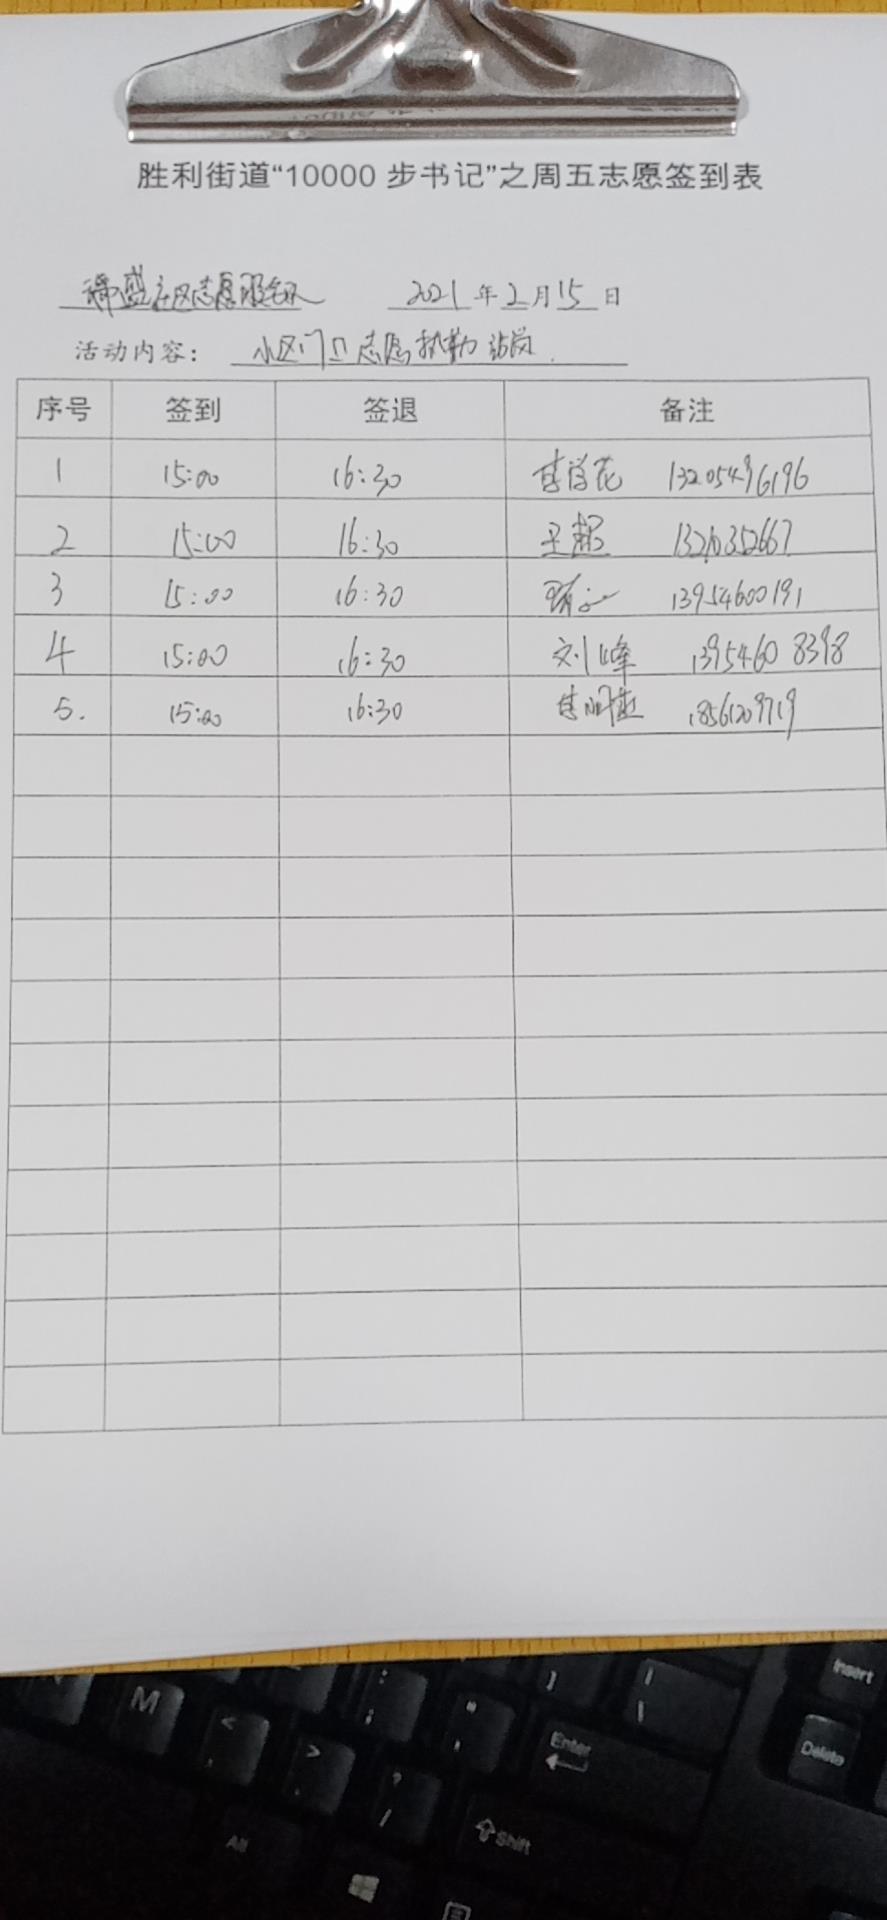 胜利街道“10000 步书记”之周五志愿签到表
盛社区志愿服务队 2021 年 2 月 15 日
活动内容: 小区门口志愿执勤站岗.
序号 签到 签退 备注
1 15:00 16:30 李学花 13205496196
2 15:00 16:30 王超
3 15:00 16:30 13954600191
4 15:00 16:30 刘峰 13954608398
5. 15:00 16:30 李 18561209719
M
< ,
> .
: ;
" '
? /
]
| \
Enter
Shift
Alt
Insert
Delete